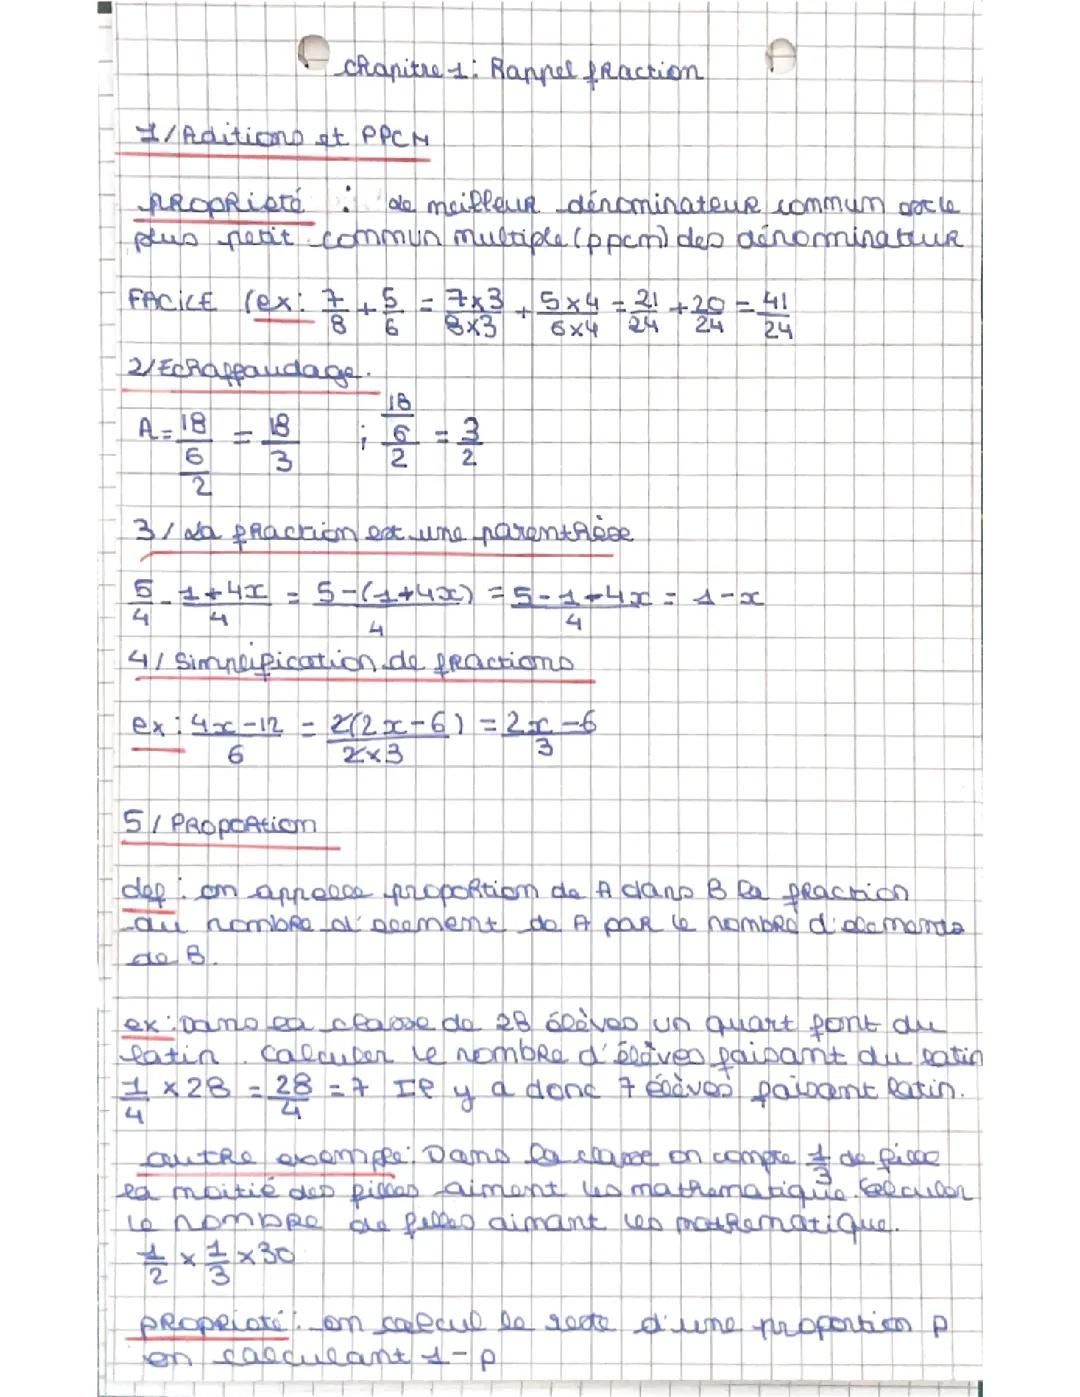 Chapitre 1 : Rappel fraction
1/ Aditions et PPCM
propriété : le meilleur dénominateur commun est le
plus petit commun multiple (ppcm) des dénominateur
FACILE (ex : 7/8 + 5/6 = 7x3/8x3 + 5x4/6x4 = 21/24 + 20/24 = 41/24
2/ Echaffaudage.
A = 18/(6/2) = 18/3 ; (18/6)/2 = 3/2
3/ La fraction est une parenthèse
5/4 - 1+4x/4 = 5-(1+4x)/4 = 5-1-4x/4 = 1-x
4/ Simplification de fractions
ex : 4x-12/6 = 2(2x-6)/2x3 = 2x-6/3
5/ Proportion
def : on appelle proportion de A dans B la fraction
du nombre d'element de A par le nombre d'elements
de B.
ex : Dans la classe de 28 élèves un quart font du
latin. Calculer le nombre d'élèves faisant du latin
1/4 x 28 = 28/4 = 7 Il y a donc 7 élèves faisant latin.
autre exemple : Dans la classe on compte 1/3 de filles
la moitié des filles aiment les mathematique. Calculer
le nombre de filles aimant les mathematique.
1/2 x 1/3 x 30
propriété : on calcul le reste d'une proportion p
en calculant 1-p